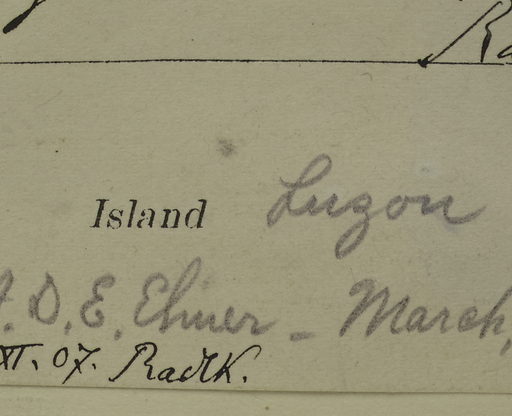 Island Luzon
D. E. Elmer - March,
XI. 07. Radlk.